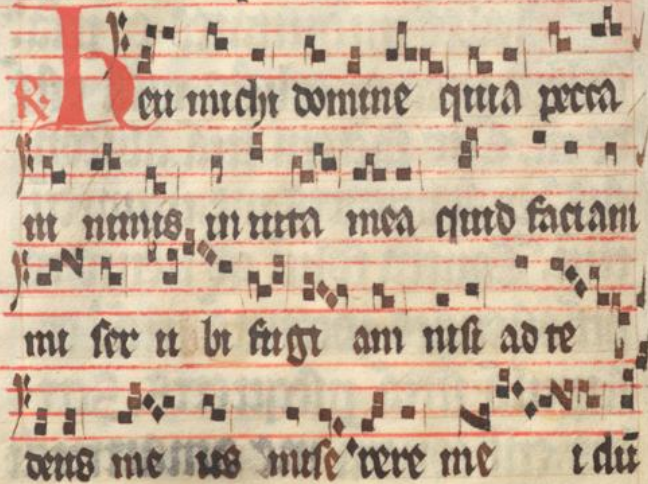 R. Heu michi domine quia pecca
ui nimis in uita mea quid faciam
mi ser u bi fugi am nisi ad te
deus me us mise rere me i dū